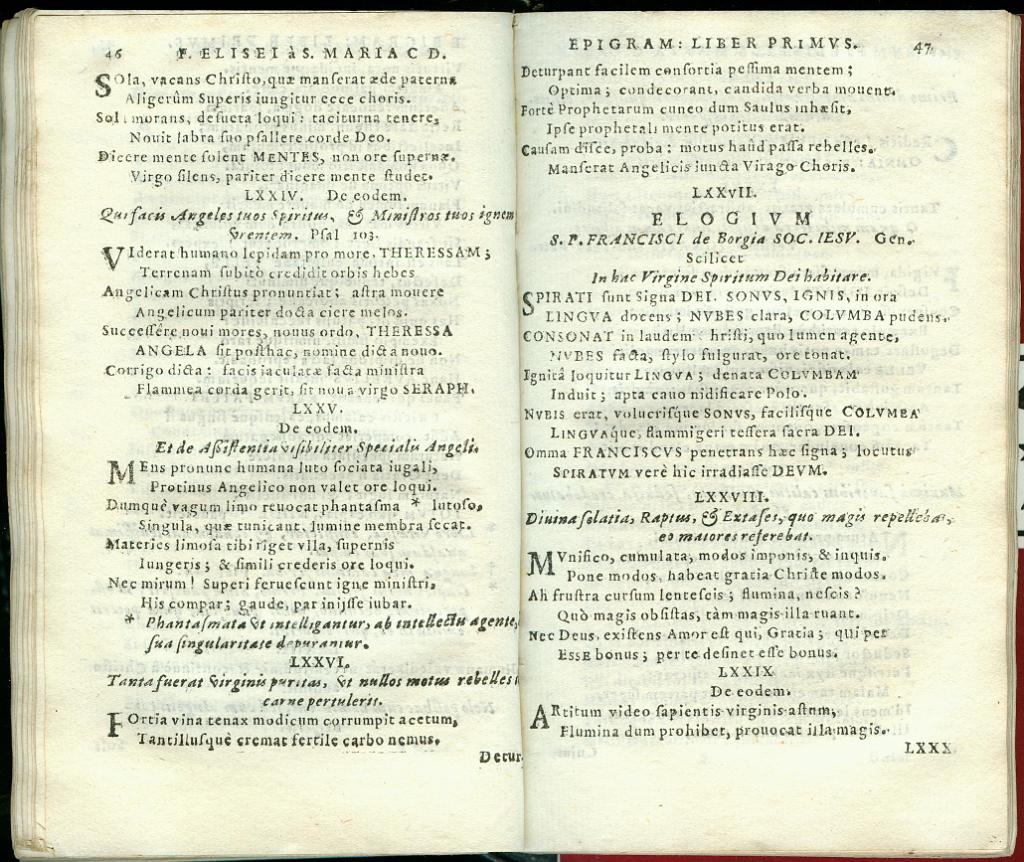 46 F. ELISEI à S. MARIA C D.
SOla, vacans Christo, quæ manserat æde paterna
Aligerûm Superis iungitur ecce choris.
Soli morans, desueta loqui: taciturna tenere,
Nouit labra suo psallere corde Deo.
Dicere mente solent MENTES, non ore supernæ.
Virgo silens, pariter dicere mente studet.
LXXIV. De eodem.
Qui facis Angelos tuos Spiritus, & Ministros tuos ignem
vrentem. Psal 103.
VIderat humano lepidam pro more, THERESSAM;
Terrenam subitò credidit orbis hebes
Angelicam Christus pronuntiat; astra mouere
Angelicum pariter docta ciere melos.
Successêre noui mores, nouus ordo, THERESSA
ANGELA sit posthac, nomine dicta nouo.
Corrigo dicta: facis iaculatæ facta ministra
Flammea corda gerit, sit noua virgo SERAPH.
LXXV.
De eodem.
Et de Assistentia visibiliter Specialis Angeli.
MEns pronunc humana luto sociata iugali,
Protinus Angelico non valet ore loqui.
Dumquè vagum limo reuocat phantasma * lutoso,
Singula, quæ tunicant, lumine membra secat.
Materies limosa tibi riget vlla, supernis
Iungeris; & simili crederis ore loqui.
Nec mirum! Superi feruescunt igne ministri,
His compar; gaude, par inijsse iubar.
* Phantasmata vt intelligantur, ab intellectu agente,
sua singularitate depurantur.
LXXVI.
Tanta fuerat virginis puritas, vt nullos motus rebelles
carne pertulerit.
FOrtia vina tenax modicum corrumpit acetum,
Tantillusquè cremat fertile carbo nemus.
Detur
EPIGRAM: LIBER PRIMVS. 47
Deturpant facilem consortia pessima mentem;
Optima; condecorant, candida verba mouent.
Fortè Prophetarum cuneo dum Saulus inhæsit,
Ipse prophetali mente potitus erat.
Causam disce, proba: motus haûd passa rebelles.
Manserat Angelicis iuncta Virago Choris.
LXXVII.
ELOGIVM
S. P. FRANCISCI de Borgia SOC. IESV. Gen.
Scilicet
In hac Virgine Spiritum Dei habitare.
SPIRATI sunt Signa DEI. SONVS, IGNIS, in ora
LINGVA docens; NVBES clara, COLVMBA pudens.
CONSONAT in laudem hristi, quo lumen agente,
NVBES facta, stylo fulgurat, ore tonat.
Ignitâ loquitur LINGVA; denata COLVMBAM
Induit; apta cauo nidificare Polo.
NVBIS erat, volucrisque SONVS, facilisque COLVMBA
LINGVAque, flammigeri tessera sacra DEI.
Omma FRANCISCVS penetrans hæc signa; locutus
SPIRATVM verè hic irradiasse DEVM.
LXXVIII.
Diuina solatia, Raptus, & Extases, quo magis repellebat,
eo maiores referebat.
MVnifico, cumulata, modos imponis, & inquis.
Pone modos, habeat gratia Christe modos.
Ah frustra cursum lentescis; flumina, nescis?
Quò magis obsistas, tàm magis illa ruant.
Nec Deus, existens Amor est qui, Gratia; qui per
ESSE bonus; per te desinet esse bonus.
LXXIX
De eodem.
ARtitum video sapientis virginis astum,
Flumina dum prohibet, prouocat illa magis.
LXXX